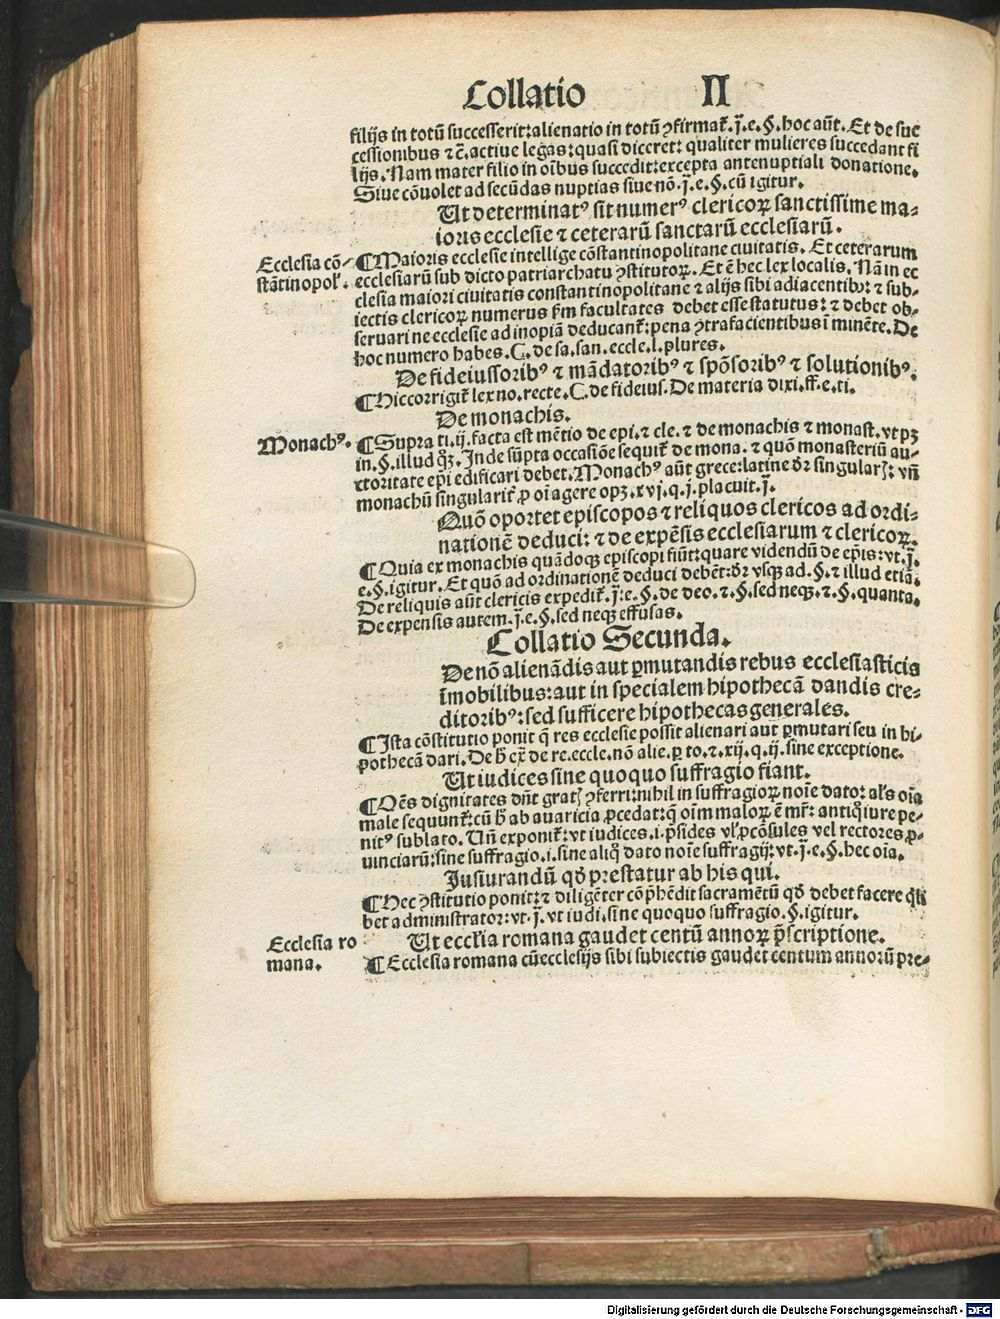 Collatio II
filijs in totū successerit: alienatio in totū ꝯfirmat̄. j̄. e. §. hoc aūt. Et de suc
cessionibus ⁊ c̄. actiue legas: quasi diceret: qualiter mulieres succedant fi
lijs. Nam mater filio in oībus succedit: excepta antenuptiali donatione.
Siue cōuolet ad secūdas nuptias siue nō. j̄. e. §. cū igitur.
Ut determinatꝰ sit numerꝰ clericoꝝ sanctissime ma⸗
ioris ecclesie ⁊ ceterarū sanctarū ecclesiarū.
Ecclesia cō⸗
stātinopol'.
¶Maioris ecclesie intellige cōstantinopolitane ciuitatis. Et ceterarum
ecclesiarū sub dicto patriarchatu ꝯstitutoꝝ. Et ē hec lex localis. Nā in ec
clesia maiori ciuitatis constantinopolitane ⁊ alijs sibi adiacentibꝰ: ⁊ sub⸗
iectis clericoꝝ numerus fm facultates debet esse statutus: ⁊ debet ob⸗
seruari ne ecclesie ad inopiā deducant̄: pena ꝯtrafacientibus īminēte. De
hoc numero habes. C. de sa. san. eccle. l. plures.
De fideiussoribꝰ ⁊ mādatoribꝰ ⁊ spōsoribꝰ ⁊ solutionibꝰ.
¶Hic corrigit̄ lex no. recte. C. de fideius. De materia dixi. ff. e. ti.
De monachis.
Monachꝰ.
¶Supra ti. ij. facta est mētio de epi. ⁊ cle. ⁊ de monachis ⁊ monast. vt pꝫ
in. §. illud qꝫ. Inde sūpta occasiōe sequit̄ de mona. ⁊ quō monasteriū au⸗
ctoritate ep̄i edificari debet. Monachꝰ aūt grece: latine dr̄ singularꝭ: vn̄
monachū singularit̄ ꝑ oīa agere opꝫ. xvj. q. j. placuit. j̄.
Quō oportet episcopos ⁊ reliquos clericos ad ordi⸗
nationē deduci: ⁊ de expēsis ecclesiarum ⁊ clericoꝝ.
¶Quia ex monachis quādoqꝫ episcopi fiūt: quare videndū de ep̄is: vt. j̄.
e. §. igitur. Et quō ad ordinationē deduci debēt: dr̄ vsqꝫ ad. §. ⁊ illud etiā.
De reliquis aūt clericis expedit̄. j̄: e. §. de deo. ⁊. §. sed neqꝫ. ⁊. §. quanta.
De expensis autem. j̄. e. §. sed neqꝫ effusas.
Collatio Secunda.
De nō alienādis aut ꝑmutandis rebus ecclesiasticis
īmobilibus: aut in specialem hipothecā dandis cre⸗
ditoribꝰ: sed sufficere hipothecas generales.
¶Ista cōstitutio ponit q̄ res ecclesie possit alienari aut ꝑmutari seu in hi⸗
pothecā dari. De h̄ ex̄ de re. eccle. nō alie. ꝑ to. ⁊. xij. q. ij. sine exceptione.
Ut iudices sine quoquo suffragio fiant.
¶Oēs dignitates dn̄t gratꝭ ꝯferri: nihil in suffragioꝝ noīe dato: al's oīa
male sequunt̄: cū h̄ ab auaricia ꝓcedat: q̄ oīm maloꝝ ē mr̄: antiq̄ iure pe⸗
nitꝰ sublato. Un̄ exponit̄: vt iudices. i. p̄sides vl' ꝓcōsules vel rectores ꝓ⸗
uinciarū: sine suffragio. i. sine aliq̄ dato noīe suffragij: vt. j̄. e. §. hec oīa.
Jusiurandū qđ prestatur ab his qui.
¶Hec ꝯstitutio ponit: ⁊ diligēter cōp̄hēdit sacramētū qđ debet facere q̄li
bet administrator: vt. j̄. vt iudi. sine quoquo suffragio. §. igitur.
Ecclesia ro
mana.
Ut eccl'ia romana gaudet centū annoꝝ p̄scriptione.
¶Ecclesia romana cū ecclesijs sibi subiectis gaudet centum annorū pre⸗
Digitalisierung gefördert durch die Deutsche Forschungsgemeinschaft - DFG